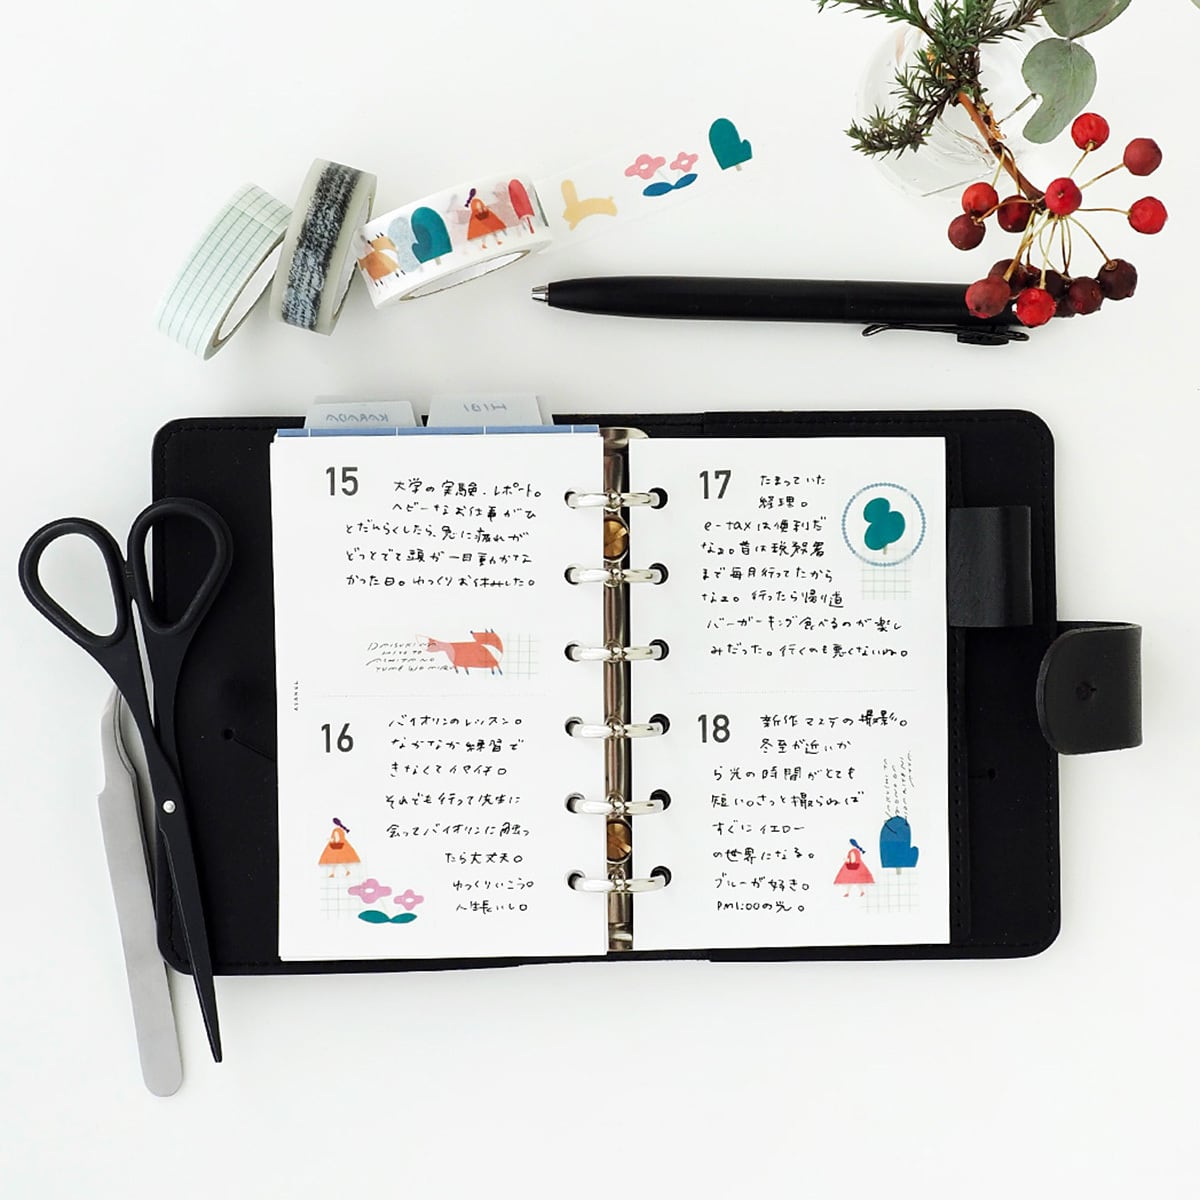 KARADA
HIBI
15
大学の実験・レポート。
ヘビーなお仕事がひ
とだんらくしたら、急に疲れが
どっとでて頭が一日動かな
かった日。ゆっくりお休みした。
OYASUKINA
ASHITA NO
YUME WO MIRU
16
バイオリンのレッスン。
なかなか練習で
きなくてイヤイヤ。
それでも行って先生に
会ってバイオリンに触っ
たら大丈夫。
ゆっくりいこう。
人生長いし。
17
たまっていた
経理。
e-taxは便利だ
なぁ。昔は税務署
まで毎月行ってたから
なぁ。行ったら帰り道
バーガーキング食べるのが楽し
みだった。行くのも悪くないね。
18
新作マステの撮影。
冬至が近いか
ら光の時間がとても
短い。さっと撮らねば
すぐにイエロー
の世界になる。
ブルーが好き。
PM1:00の光。